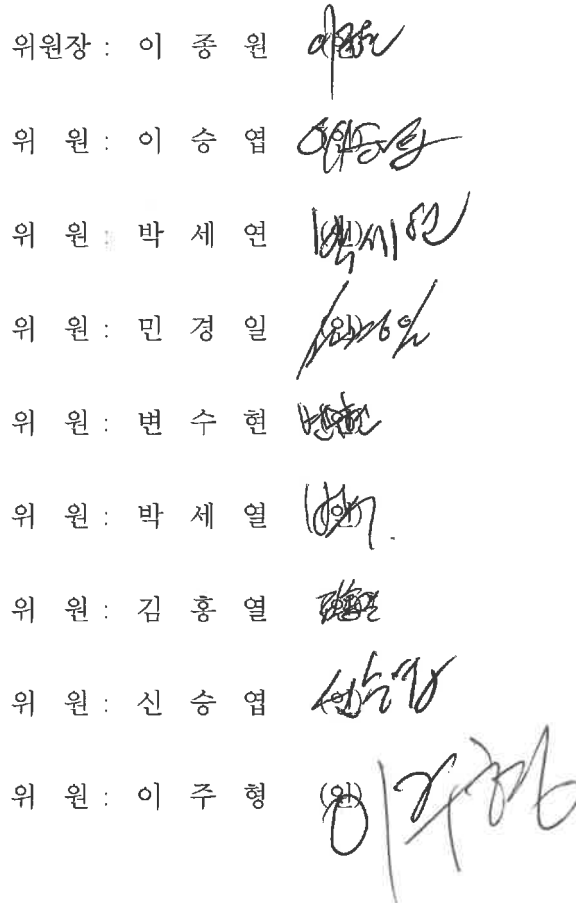 위원장 : 이 종 원 (인)
위 원 : 이 승 엽 (인)
위 원 : 박 세 연 (인) 박세연
위 원 : 민 경 일 (인)
위 원 : 변 수 현
위 원 : 박 세 열 (인)
위 원 : 김 홍 열
위 원 : 신 승 엽 (인)
위 원 : 이 주 형 (인) 이주형